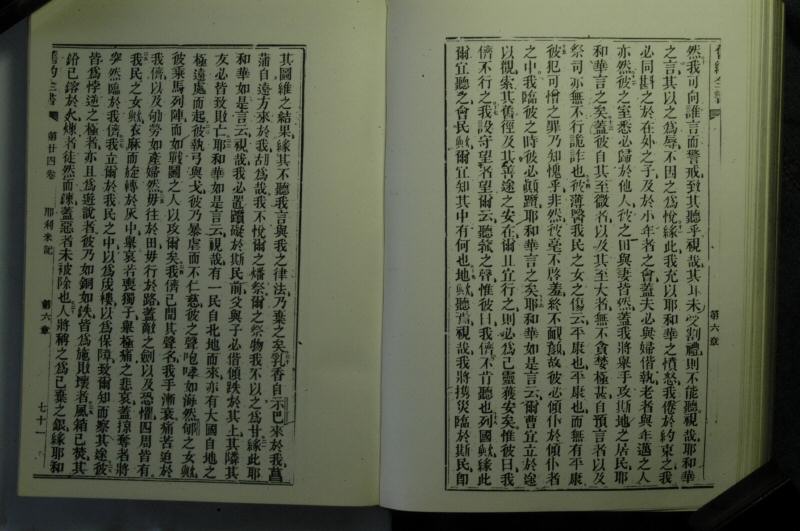 然我可向誰言而警戒致其聽乎視哉其耳未受割禮則不能聽視哉耶和華
之言其以之為辱不因之為悅緣此我充以耶和華之憤怒我倦於約束之我
必同斟之於在外之子及於小年者之會蓋夫必與婦偕執老者與年邁之人
亦然彼之室悉必歸於他人彼之田與妻皆然蓋我將舉手攻斯地之居民耶
和華言之矣蓋彼自其至微者以及其至大者無不貪婪極甚自預言者以及
祭司亦無不行詭詐也彼薄醫我民之女之傷云平康也平康也而無有平康
彼犯可憎之罪乃知愧乎非然彼毫不啓羞終不靦顏故彼必傾仆於傾仆者
之中我臨彼之時彼必顛躓耶和華言之矣耶和華如是言云爾曹宜立於途
以觀索其舊徑及其善途之安在爾且宜行之則必為己靈獲安矣惟彼曰我
儕不行之我設守望者望爾云聽號之聲惟彼曰我儕不肯聽也列國歟緣此
爾宜聽之會民歟爾宜知其中有何也地歟聽焉視哉我將携災臨於斯民即
第六章
其圖維之結果緣其不聽我言與我之律法乃棄之矣乳香自示巴來於我菖
蒲自遠方來於我胡為哉我不悅爾之燔祭爾之祭物我不以之為甘緣此耶
和華如是言云視哉我必置躓礙於斯民前父與子必偕傾跌於其上其隣其
友必皆致敗亡耶和華如是言云視哉有一民自北地而來亦有大國自地之
極遠處而起彼執弓與戈彼乃暴虐而不仁慈彼之聲咆哮如海然郇之女歟
彼乘馬列陣而如戰鬭之人以攻爾矣我儕已聞其聲名我手漸衰痛苦迫於
我儕以及劬勞如產婦然毋往於田毋行於路蓋敵之劍以及恐懼四周皆有
我民之女歟衣麻而旋轉於灰中舉哀若喪獨子舉極痛之悲哀蓋掠奪者將
突然臨於我儕我立爾於我民之中以為戍樓以為保障致爾知而察其途彼
皆為悖逆之極者亦且為遊說者彼乃如銅如鉄皆為施敗壞者風箱已焚其
鉛已鎔於火煉者徒然而鍊蓋惡者未被除也人將稱之為已棄之銀緣耶和
舊約全書
第廿四卷
耶利米記
第六章
七十一